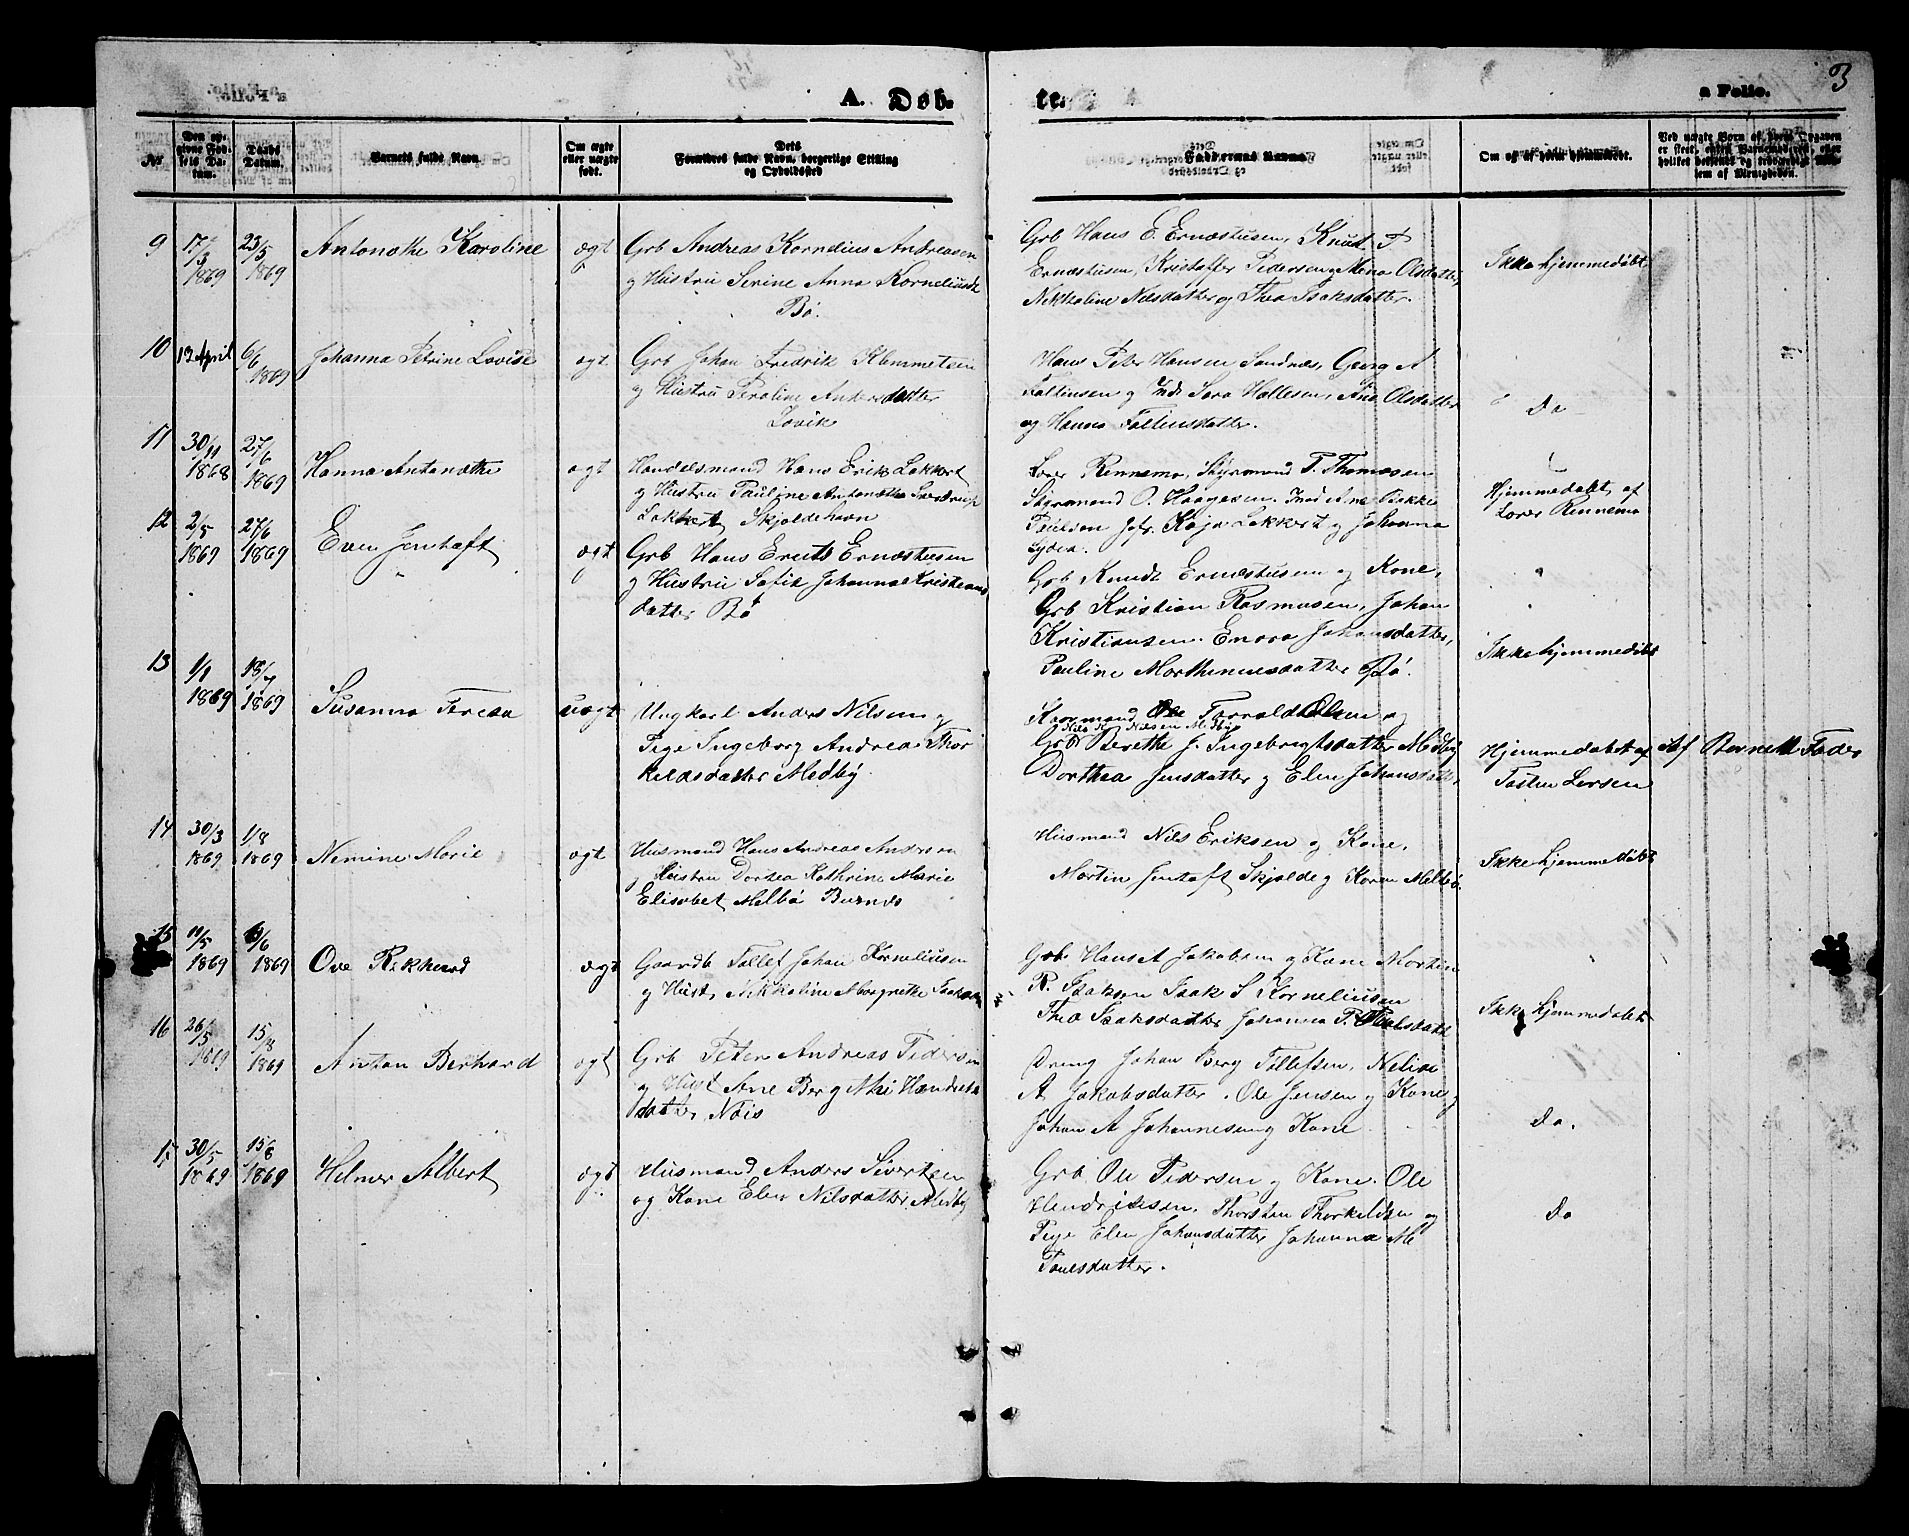 3
A. Døb-
te.
a Folio.
No
Den op-
givne Fød-
sels Da-
tum.
Daabs
Datum.
Barnets fulde Navn.
Om ægte
eller uægte
født.
Dets
Forældres fulde Navn, borgerlige Stilling
og Opholdssted
Faddernes Navne
Om og af hvem hjemmedøbt.
Ved uægte Børn af hvem Opgaven
er skeet, enten Barnemoderen, eller
hvilket bekjendt og troværdigt Med-
lem af Menigheden.
9
17/3
1869
23/5
1869
Antonethe Karoline
ægt
Grb Andreas Kornelius Andreasen
og Hustru Serine Anna Korneliusdt
Bø.
Grb Hans E. Ernæstusen, Knut P
Ernæstusen, Kristoffer Pedersen, Mena Olsdatter,
Nikkoline Nilsdatter og Thea Isaksdatter.
Ikke hjemmedøbt
10
12 April
6/6
1869
Johanna Petrine Lovise
ægt
Grb Johan Fredrik Klemmetsen
og Hustru Peroline Andersdatter
Lovik
Hans Peter Hansen Sandnes, Georg A
Foltinsen og Md. Sara Hællesen, Ane Olsdatter
og Hanna Foltinsdatter.
Do
11
30/11
1868
27/6
1869
Hanna Antonethe
ægt
Handelsmand Hans Erik Lokkert
og Hustru Pauline Antonetha Sverdrup
Lokkert Skjoldehavn
Lorer Rennemo, Styrmand P. Thomasen
Styrmand O. Haagesen. Mad Ane Bakke
Paulsen Jfr. Kaja Lokkert og Johanna
Lydea.
Hjemmedøbt af
Lorer Rennemo
12
2/5
1869
27/6
1869
Even Jentoft
ægt
Grb Hans Eruts Ernæstusen
og Hustru Sofie Johanna Kristians
datter Bø
Grb Knudt Ernæstusen og Kone,
Grb Kristian Rasmusen, Johan
Kristiansen. Emora Johansdatter,
Pauline Morthinusdatter Bø.
Ikke hjemmedøbt
13
1/1
1869
18/7
1869
Susanna Terea
uægt
Ungkarl Anders Nilsen og
Pige Ingeborg Andrea Thor
keldsdatter Medby.
Kaarmand Ole Thorald Olsen og
Nils N. Nilsen Medby
Grb Berethe J. Ingebrigtsdatter Medby
Dorthea Jensdatter og Elen Johansdatter,
Hjemmedøbt af
Tosten Larsen
Af Barnets Fader
14
30/3
1869
1/8
1869
Nemine Marie
ægt
Husmand Hans Andreas Andersen
og Hustru Dortea Kathrine Marie
Elisabet Melbø Burnes
Husmand Nils Eriksen og Kone,
Mortin Jentoft Skjolde og Karen Melbø
Ikke hjemmedøbt
15
11/5
1869
/6
1869
Ove Rikhard
ægt
Gaardb Tollef Johan Korneliusen
og Hust. Nikkoline Margrethe Isaksen
Grb. Hans A Jakobsen og Kone Mortin
R. Isaksen Isak S Korneliusen
Theo Isaksdatter Johanna P. Poulsdatt
Ikke hjemmedøbt
16
26/5
1869
15/8
1869
Anton Berhard
ægt
Grb Peter Andreas Pedersen
og Hust Ane Berg Mai Hendriks
datter Nøis
Dreng Johan Berg Tollefsen, Neline
A Jakobsdatter. Ole Jensen og Kone,
Johan A Johannesen og Kone
Do.
17
30/5
1869
15/8
1869
Helmer Albert
ægt
Husmand Anders Sivertsen
og Kone Elen Nilsdatter Medby
Grb Ole Pedersen og Kone. Ole
Hendriksen. Thorsten Thorkildsen og
Pige Elen Johansdatter Johanna M
Poulsdatter.
Do